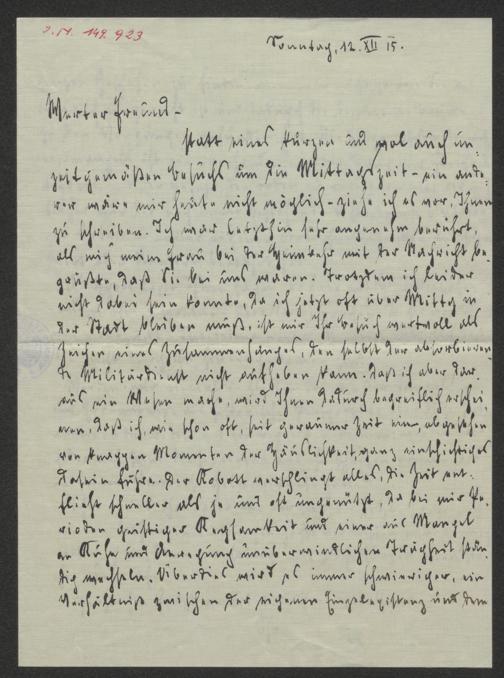 J.N. 149.923
Sonntag, 12. XII 15.
Werter Freund –
statt eines kurzen und wol auch un-
zeitgemäßen Besuchs um die Mittagszeit – ein ande-
rer wäre mir heute nicht möglich – ziehe ich es vor, Ihnen
zu schreiben. Ich war letzthin sehr angenehm berührt,
als mich meine Frau bei der Heimkehr mit der Nachricht be-
grüßte, daß Sie bei uns waren. Trotzdem ich leider
nicht dabei sein konnte, da ich jetzt oft über Mittag in
der Stadt bleiben muß, ist mir Ihr Besuch wertvoll als
Zeichen eines Zusammenhanges, den selbst der absorbieren-
de Militärdienst nicht aufheben kann. Daß ich aber dar-
aus ein Wesen mache, wird Ihnen dadurch begreiflich erschei-
nen, daß ich, wie schon oft, seit geraumer Zeit ein, abgesehen
von knappen Momenten der Häuslichkeit, ganz einschichtiges
Dasein führe. Der Robott verschlingt alles, die Zeit ent-
flieht schneller als je und oft ungenützt, da bei mir Pe-
rioden geistiger Regsamkeit und einer aus Mangel
an Ruhe und Anregung unüberwindlichen Trägheit stän-
dig wechseln. Überdies wird es immer schwieriger, ein
Verhältniß zwischen der eigenen Einzelexistenz und dem